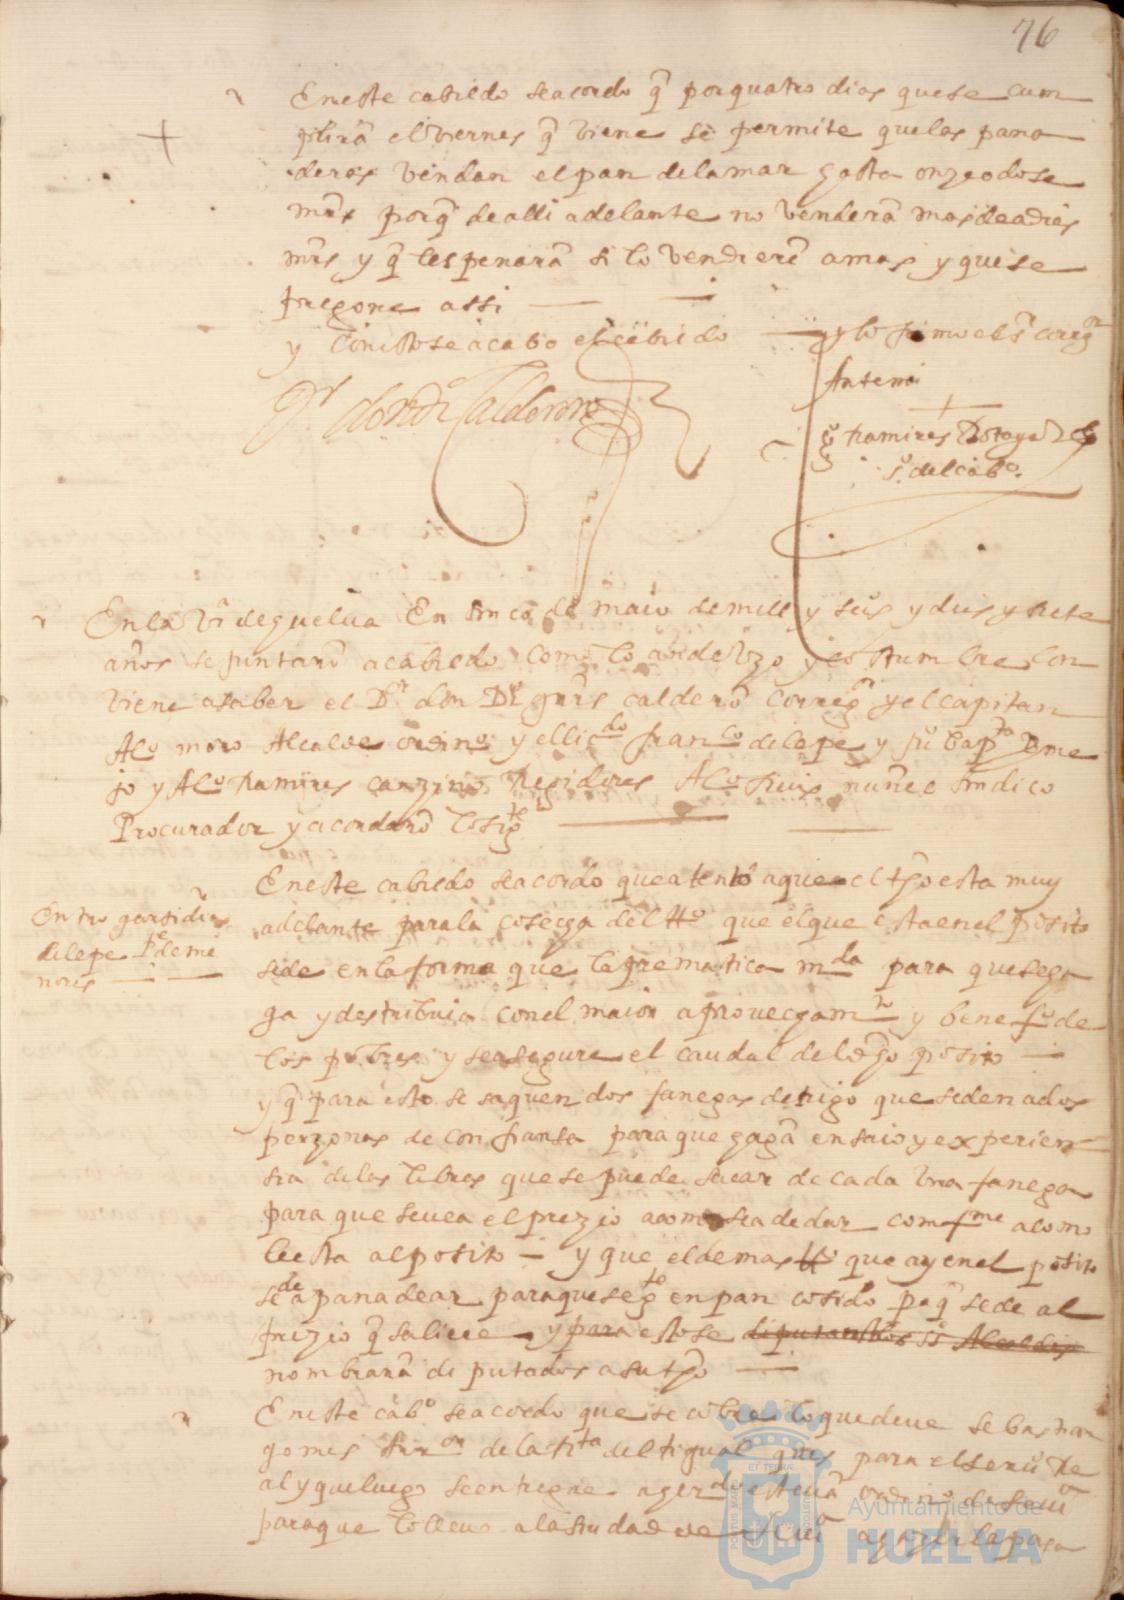 76
En este cabildo se acordo q̃ por quatro dias que se cum
plirã el viernes q̃ viene se permite que las pana
deras vendan el pan de la mar hasta onze o dose
mrs porq̃ de alli adelante no venderã mas de a dies
mrs y q̃ les penarã si lo vendierẽ a mas y que se
pregone assi
y con esto se acabo el cabildo y lo firmo el sr correg.or
Ante mi
Dr don di Calderon
Ramires
sº del cabº.
En la vª de guelva En sinco de maio de mill y seisº y dies y siete
años se juntarõ a cabildo como lo an de uzo y costumbre con
viene a saber el Dor don Dº calderõ correg.or y el capitan
Alº moro Alcalde ordinº y el licdo franco de lepe y juº bapta
jo y Alº Ramires regidores Alº Ruis nuñes sindico
Procurador y acordarõ lo sigte
En este cabildo se acordo que atento a que el tpo esta muy
adelante para la cosecha del ttº que el que esta en el posito
se de en la forma que la prematica mda para que se ha
ga y destribuia con el maior aprovechamto y benefº de
los pobres y se asegure el caudal del dho posito
y q̃ para esto se saquen dos fanegas de trigo que se den a dos
perzonas de confiansa para que hagã ensaio y experien
sia de las libras que se puede sacar de cada una fanega
para que se vea el prezio a como se a de dar comfme a como
le esta al posito y que el demas ttº que ay en el posito
se de a panadear para que se gte en pan cosido pª q̃ se de al
prezio q̃ saliere y para esto se
nombrarã diputados a su tpo
Entro garsi dias
de lepe Pe de me
nores
En este cabº se acordo que se cobre lo que deve sebastian
gomes de la rta del para el servº Re
al y que luego se entregue a
para que lo lleve a la siudad de sevª
Ayuntamiento de
HUELVA